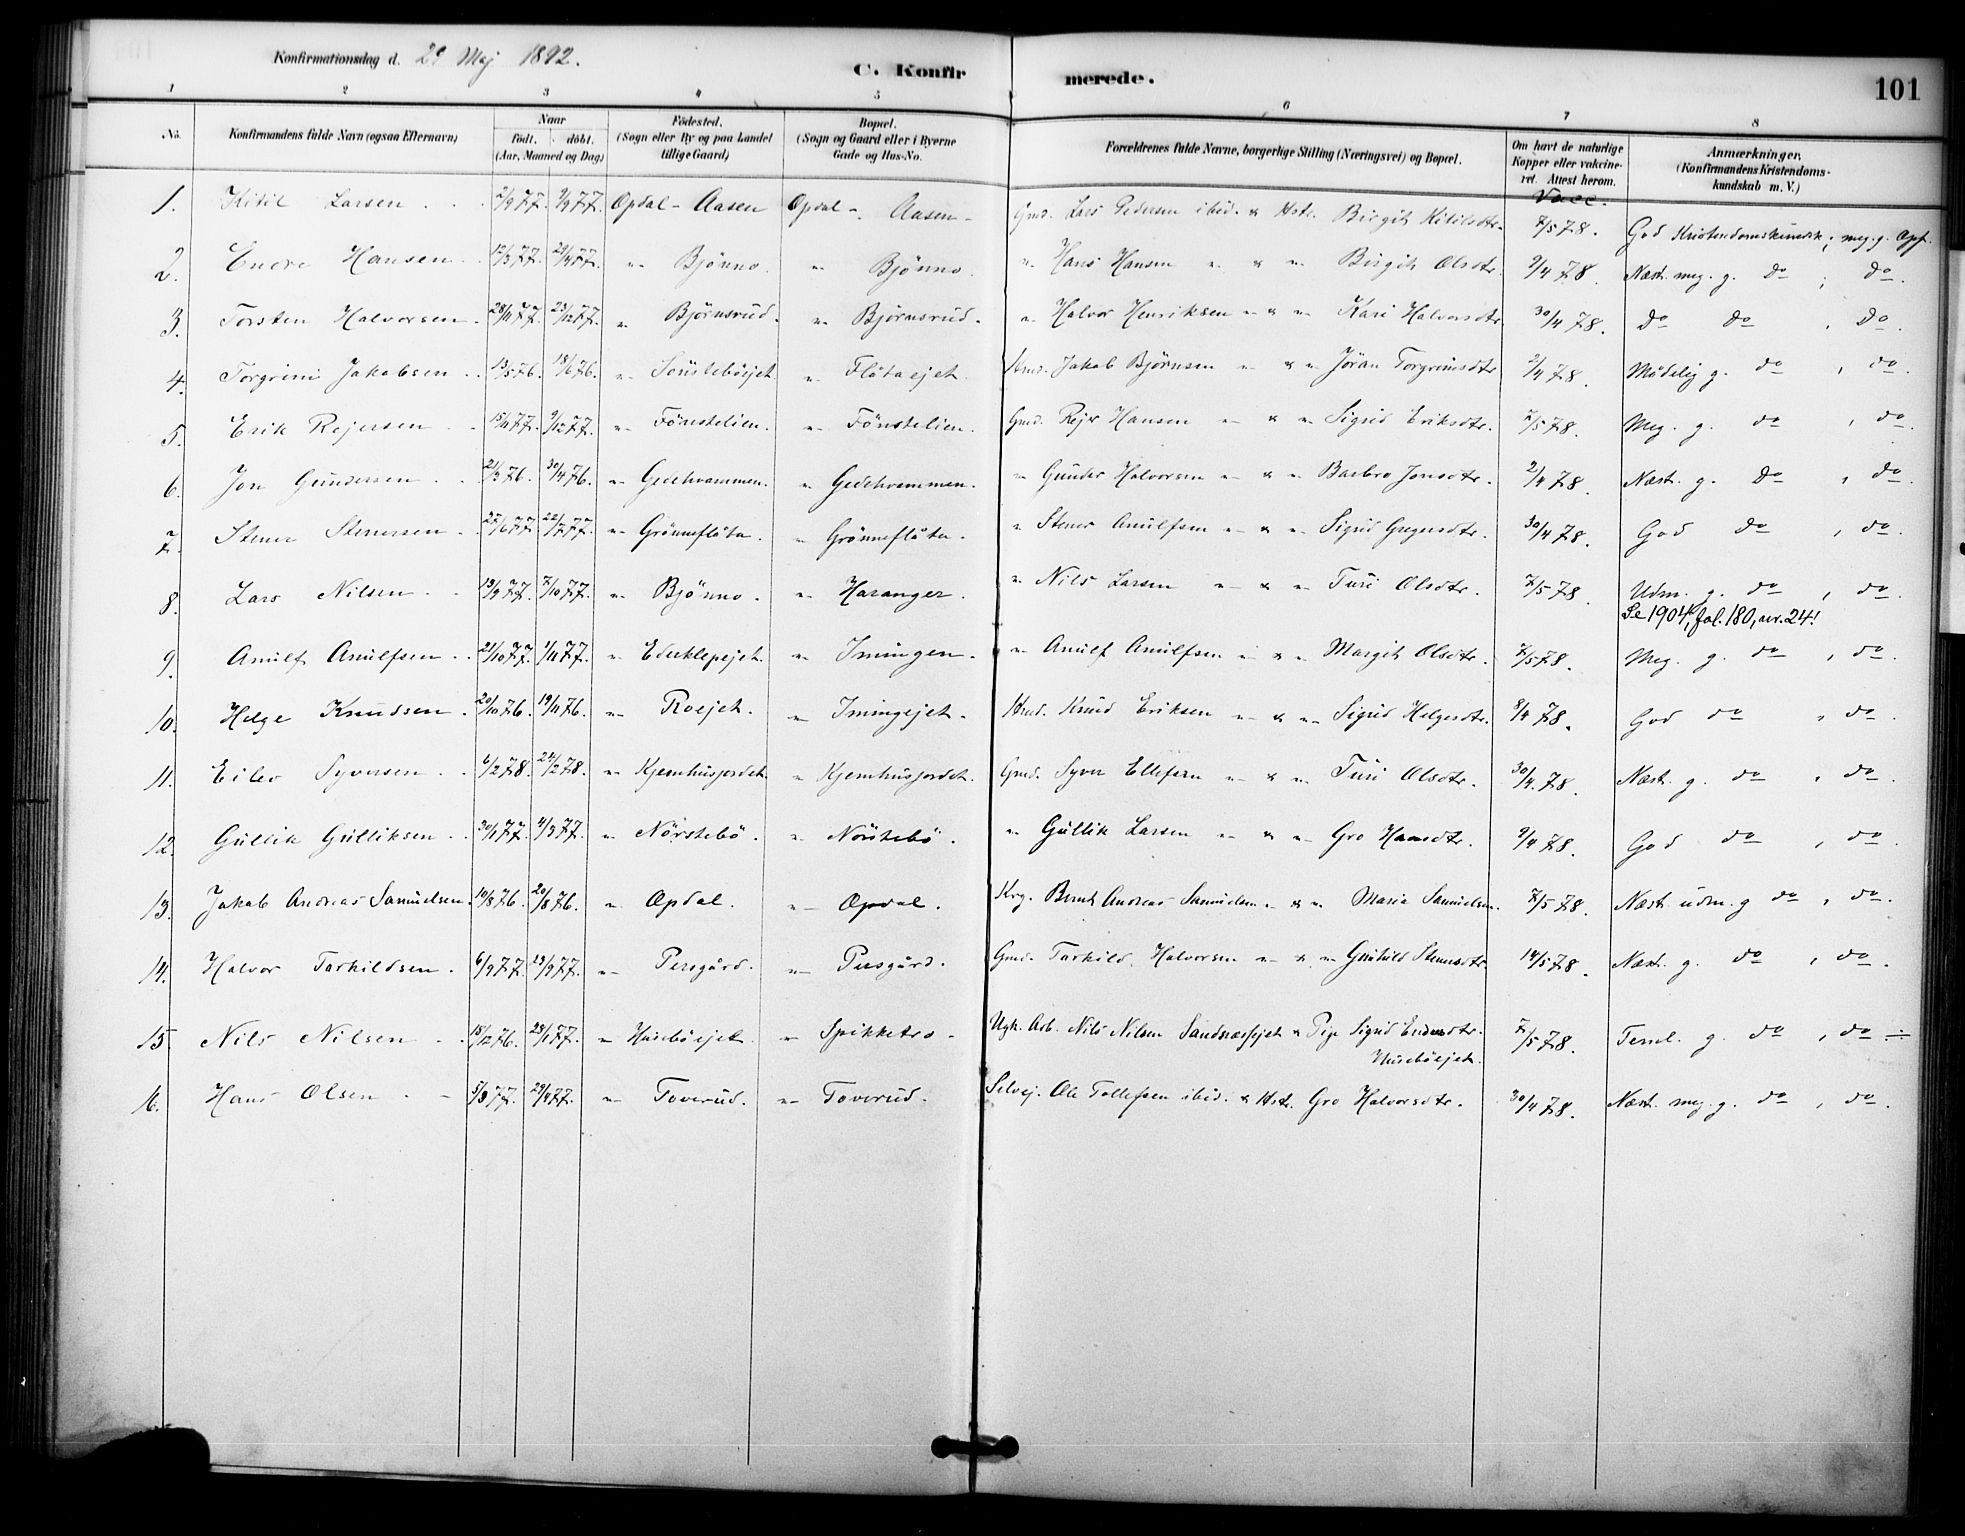 Konfirmationsdag d. 29 Maj 1892.
C. Konfirmerede.
101
1 2 3 4 5 6 7 8
No. Konfirmandens fulde Navn (ogsaa Efternavn) Naar født. døbt. (Aar, Maaned og Dag) Fødested. (Sogn eller By og paa Landet tillige Gaard) Bopæl. (Sogn og Gaard eller i Byerne Gade og Hus-No. Forældrenes fulde Navne, borgerlige Stilling (Næringsvei) og Bopæl. Om havt de naturlige Kopper eller vakcineret. Attest herom. Anmærkninger. (Konfirmandens Kristendomskundskab m. V.)
Vacc.
1. Kitil Larsen 2/9 77. 9/9 77. Opdal - Aasen Opdal - Aasen - Gmd. Lars Pedersen ibid. & Hstr. Birgit Kitilsdtr. 7/5 78. God Kristendomskundsk; meg. g. Opf.
2. Endre Hansen 12/3 77. 29/4 77. " Bjönno. " Bjönno. " Hans Hansen " & " Birgit Olsdtr. 9/4 78. Næst. meg. g. do ; do.
3. Torsten Halvorsen 28/11 77. 23/12 77. " Björnsrud. " Björnsrud. " Halvor Henriksen " & " Kari Halvorsdtr. 30/4 78. do do , do.
4. Torgrim Jakobsen 13/5 76. 18/6 76. " Sönsteböejet " Flåtaejet. Hmd. Jakob Björnsen " & " Jöran Torgrimsdtr 2/4 78. Mådelig g. do , do.
5. Erik Rejersen 15/11 77. 9/12 77. " Fönstelien. " Fönstelien. Gmd. Rejer Hansen " & " Sigrid Eriksdtr. 7/5 78. Meg. g. do , do.
6. Jon Gundersen 21/3 76. 30/4 76. " Gedehvammen. " Gedehvammen. " Gunder Halvorsen " & " Barbro Jonsdtr. 2/4 78. Næst. g. do , do.
7. Stener Stenersen 27/6 77. 22/7 77. " Grönneflåta. " Grönneflåta. " Stener Anulfsen " & " Sigrid Gregersdtr. 30/4 78. God do , do.
8. Lars Nilsen 13/9 77. 7/10 77. " Bjönno. " Haranger. " Nils Larsen " & " Turi Olsdtr. 7/5 78. Udm. g. do , do.
Se 1904, fol. 180, nr. 24!
9. Anulf Anulfsen 21/10 77. 1/11 77. " Ederklepejet. " Imingen. " Anulf Anulfsen " & " Margit Olsdtr. 7/5 78. Meg. g. do , do.
10. Helge Knudsen 20/10 76. 19/11 76. " Roejet. " Imingejet. Hmd. Knud Eriksen " & " Sigrid Helgesdtr. 8/4 78. God do , do.
11. Eilev Syversen 6/2 78. 24/2 78. " Kjemhusjordet. " Kjemhusjordet. Gmd. Syver Ellefsen " & " Turi Olsdtr. 30/4. 78. Næst. g. do , do.
12. Gullik Gulliksen 30/1 77. 4/3 77. " Nörstebö. " Nörstebö. " Gullik Larsen " & " Gro Hansdtr. 9/4 78. God do , do.
13. Jakob Andreas Samuelsen. 10/8 76. 20/8 76. " Opdal. " Opdal. Krg. Bernt Andreas Samuelsen " & " Maria Samuelsen. 7/5 78. Næst. udm. g do , do.
14. Halvor Tarkildsen. 6/9 77. 23/9 77. " Persgård. " Persgård. Gmd. Tarkild Halvorsen " & " Gunhild Stenersdtr. 14/5 78. Næst. g. do , do.
15. Nils Nilsen 15/12 76. 28/1 77. " Huseböejet " Spikketro - Ugk. Arb. Nils Nilsen Sandnæsejet & Pige Sigrid Endresdtr. 7/5 78. Teml. g. do , do ÷
Huseböejet.
16. Hans Olsen 5/3 77. 29/4 77. " Toverud. " Toverud. Selvej. Ole Tollefsen ibid. & Hstr. Gro Halvorsdtr. 30/4 78. Næst. meg. g. do , do.